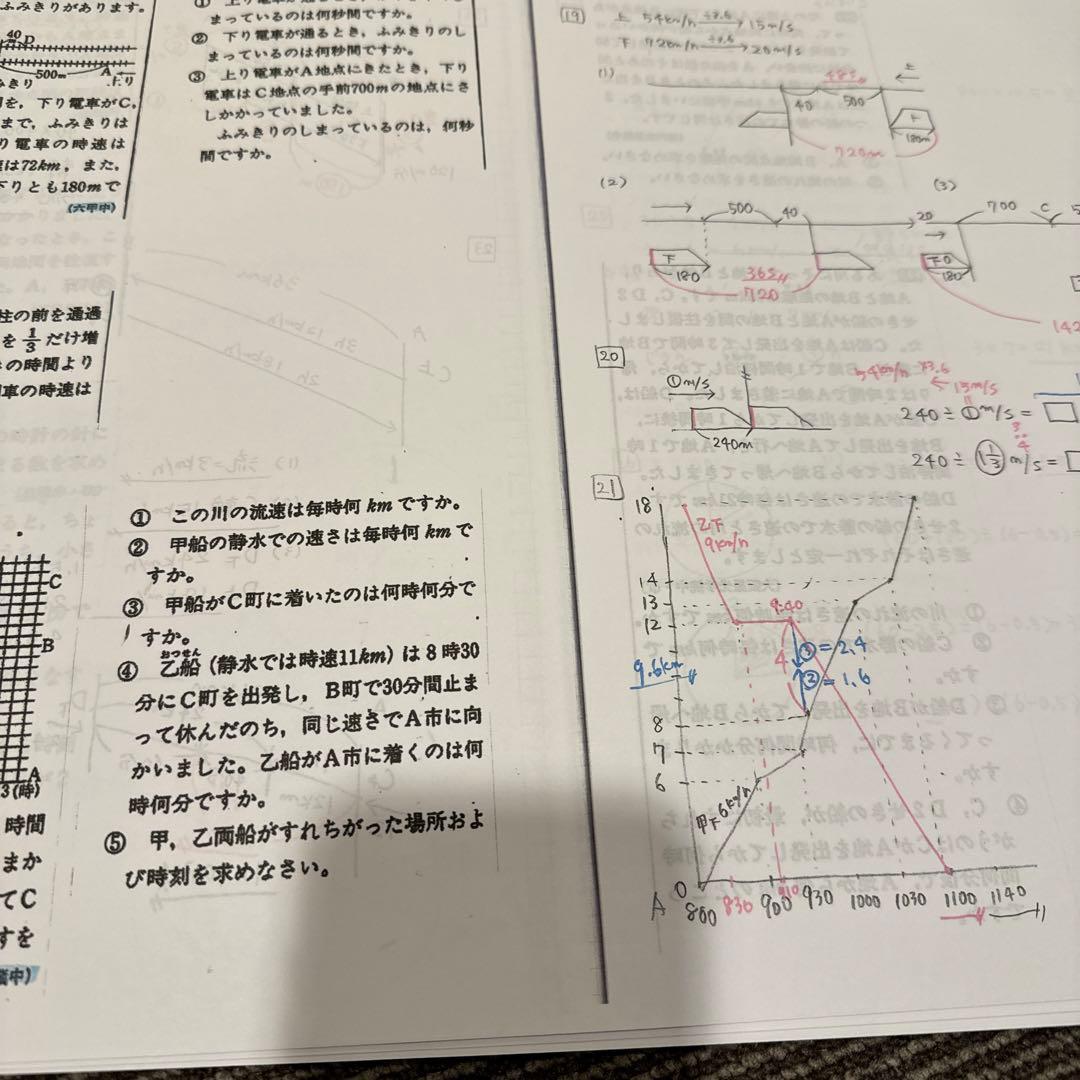 ふみきりがあります。
40 D
500m A
上り
を，下り電車がC，
まで，ふみきりは
り電車の時速は
は72km，また，
下りとも180mで
(六甲中)
柱の前を通過
を1/3だけ増
の時間より
車の時速は
C
B
A
3(時)
時間
まか
てC
すを
まっているのは何秒間ですか。
② 下り電車が通るとき，ふみきりのし
まっているのは何秒間ですか。
③ 上り電車がA地点にきたとき，下り
電車はC地点の手前700mの地点にさ
しかかっていました。
ふみきりのしまっているのは，何秒
間ですか。
① この川の流速は毎時何kmですか。
② 甲船の静水での速さは毎時何kmで
すか。
③ 甲船がC町に着いたのは何時何分で
すか。
④ 乙船（静水では時速11km）は8時30
おつせん
分にC町を出発し，B町で30分間止ま
って休んだのち，同じ速さでA市に向
かいました。乙船がA市に着くのは何
時何分ですか。
⑤ 甲，乙両船がすれちがった場所およ
び時刻を求めなさい。
19
上 54km/h ÷3.6 15m/s
下 72km/h ÷3.6 20m/s
(1)
48s
40 500
下
180m
720m
(2)
500 40
下
180
36s
720
(3)
20
700 C
下
180
142
20
①m/s
240m
54km/h ×3.6
15m/s
240÷①m/s=
240÷(1 1/3)m/s=
21
18
乙下
9km/h
14
13
12
9:40
4
③=2.4
②=1.6
9.6km
8
7
6
甲下6km/h
A 0
800 830 900 910 930 1000 1030 1100 1140